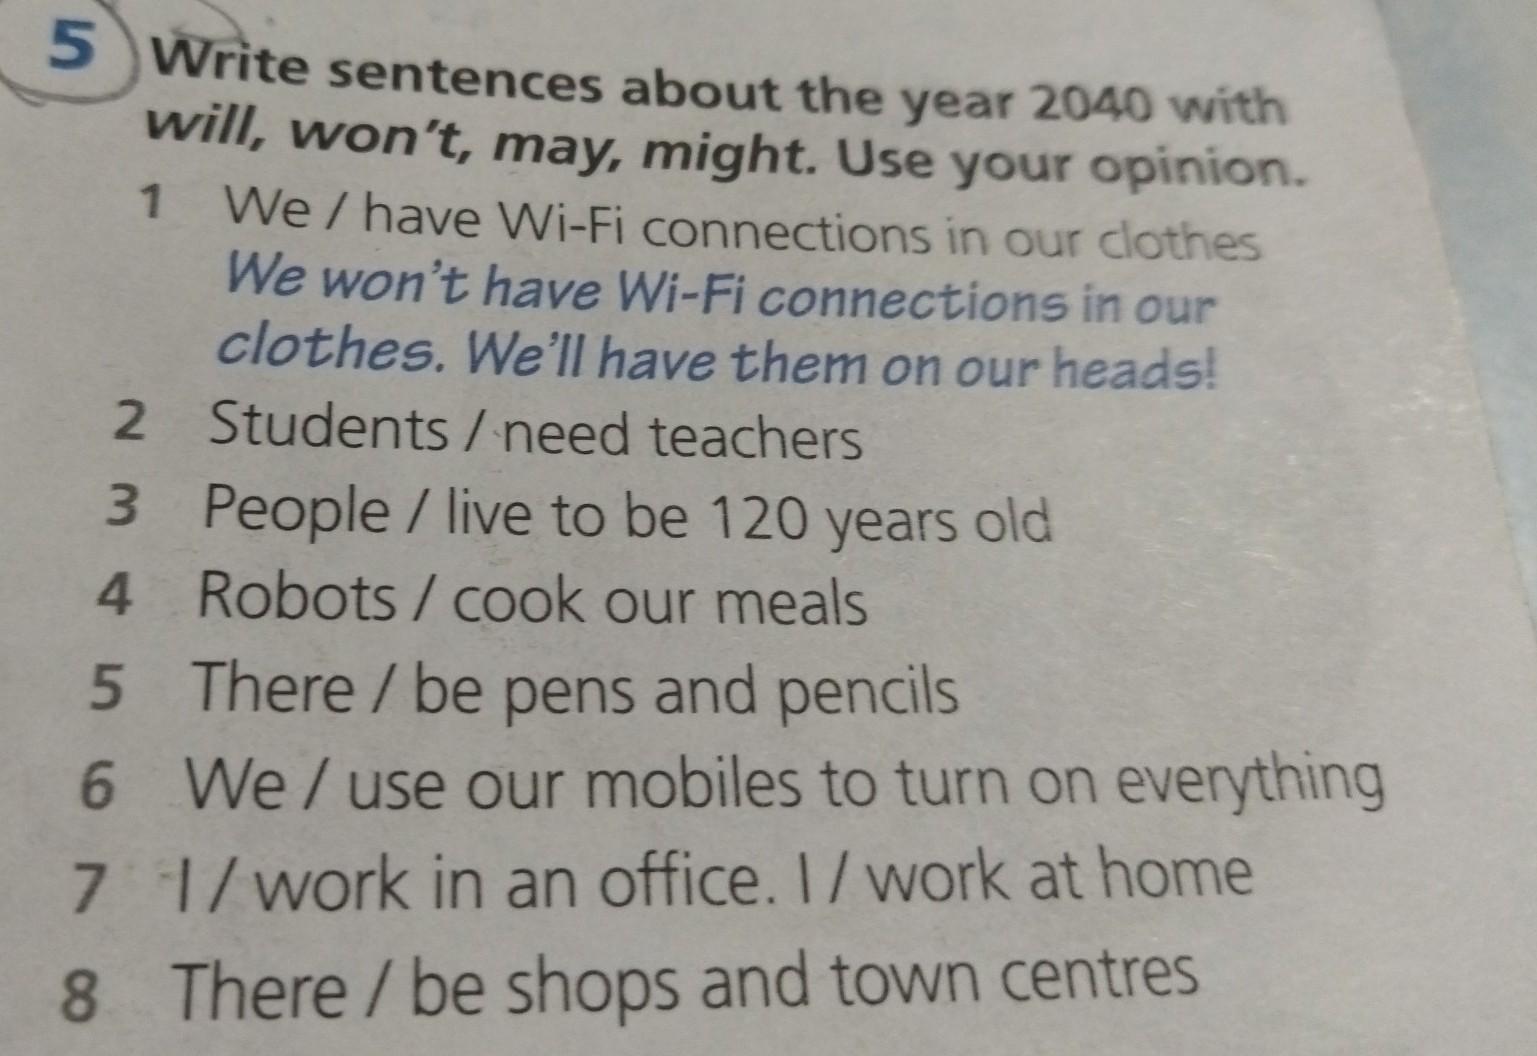 5 Write sentences about the year 2040 with
will, won't, may, might. Use your opinion.
1 We / have Wi-Fi connections in our clothes
We won't have Wi-Fi connections in our
clothes. We'll have them on our heads!
2 Students / need teachers
3 People / live to be 120 years old
4 Robots / cook our meals
5 There / be pens and pencils
6 We / use our mobiles to turn on everything
7 I / work in an office. I / work at home
8 There / be shops and town centres